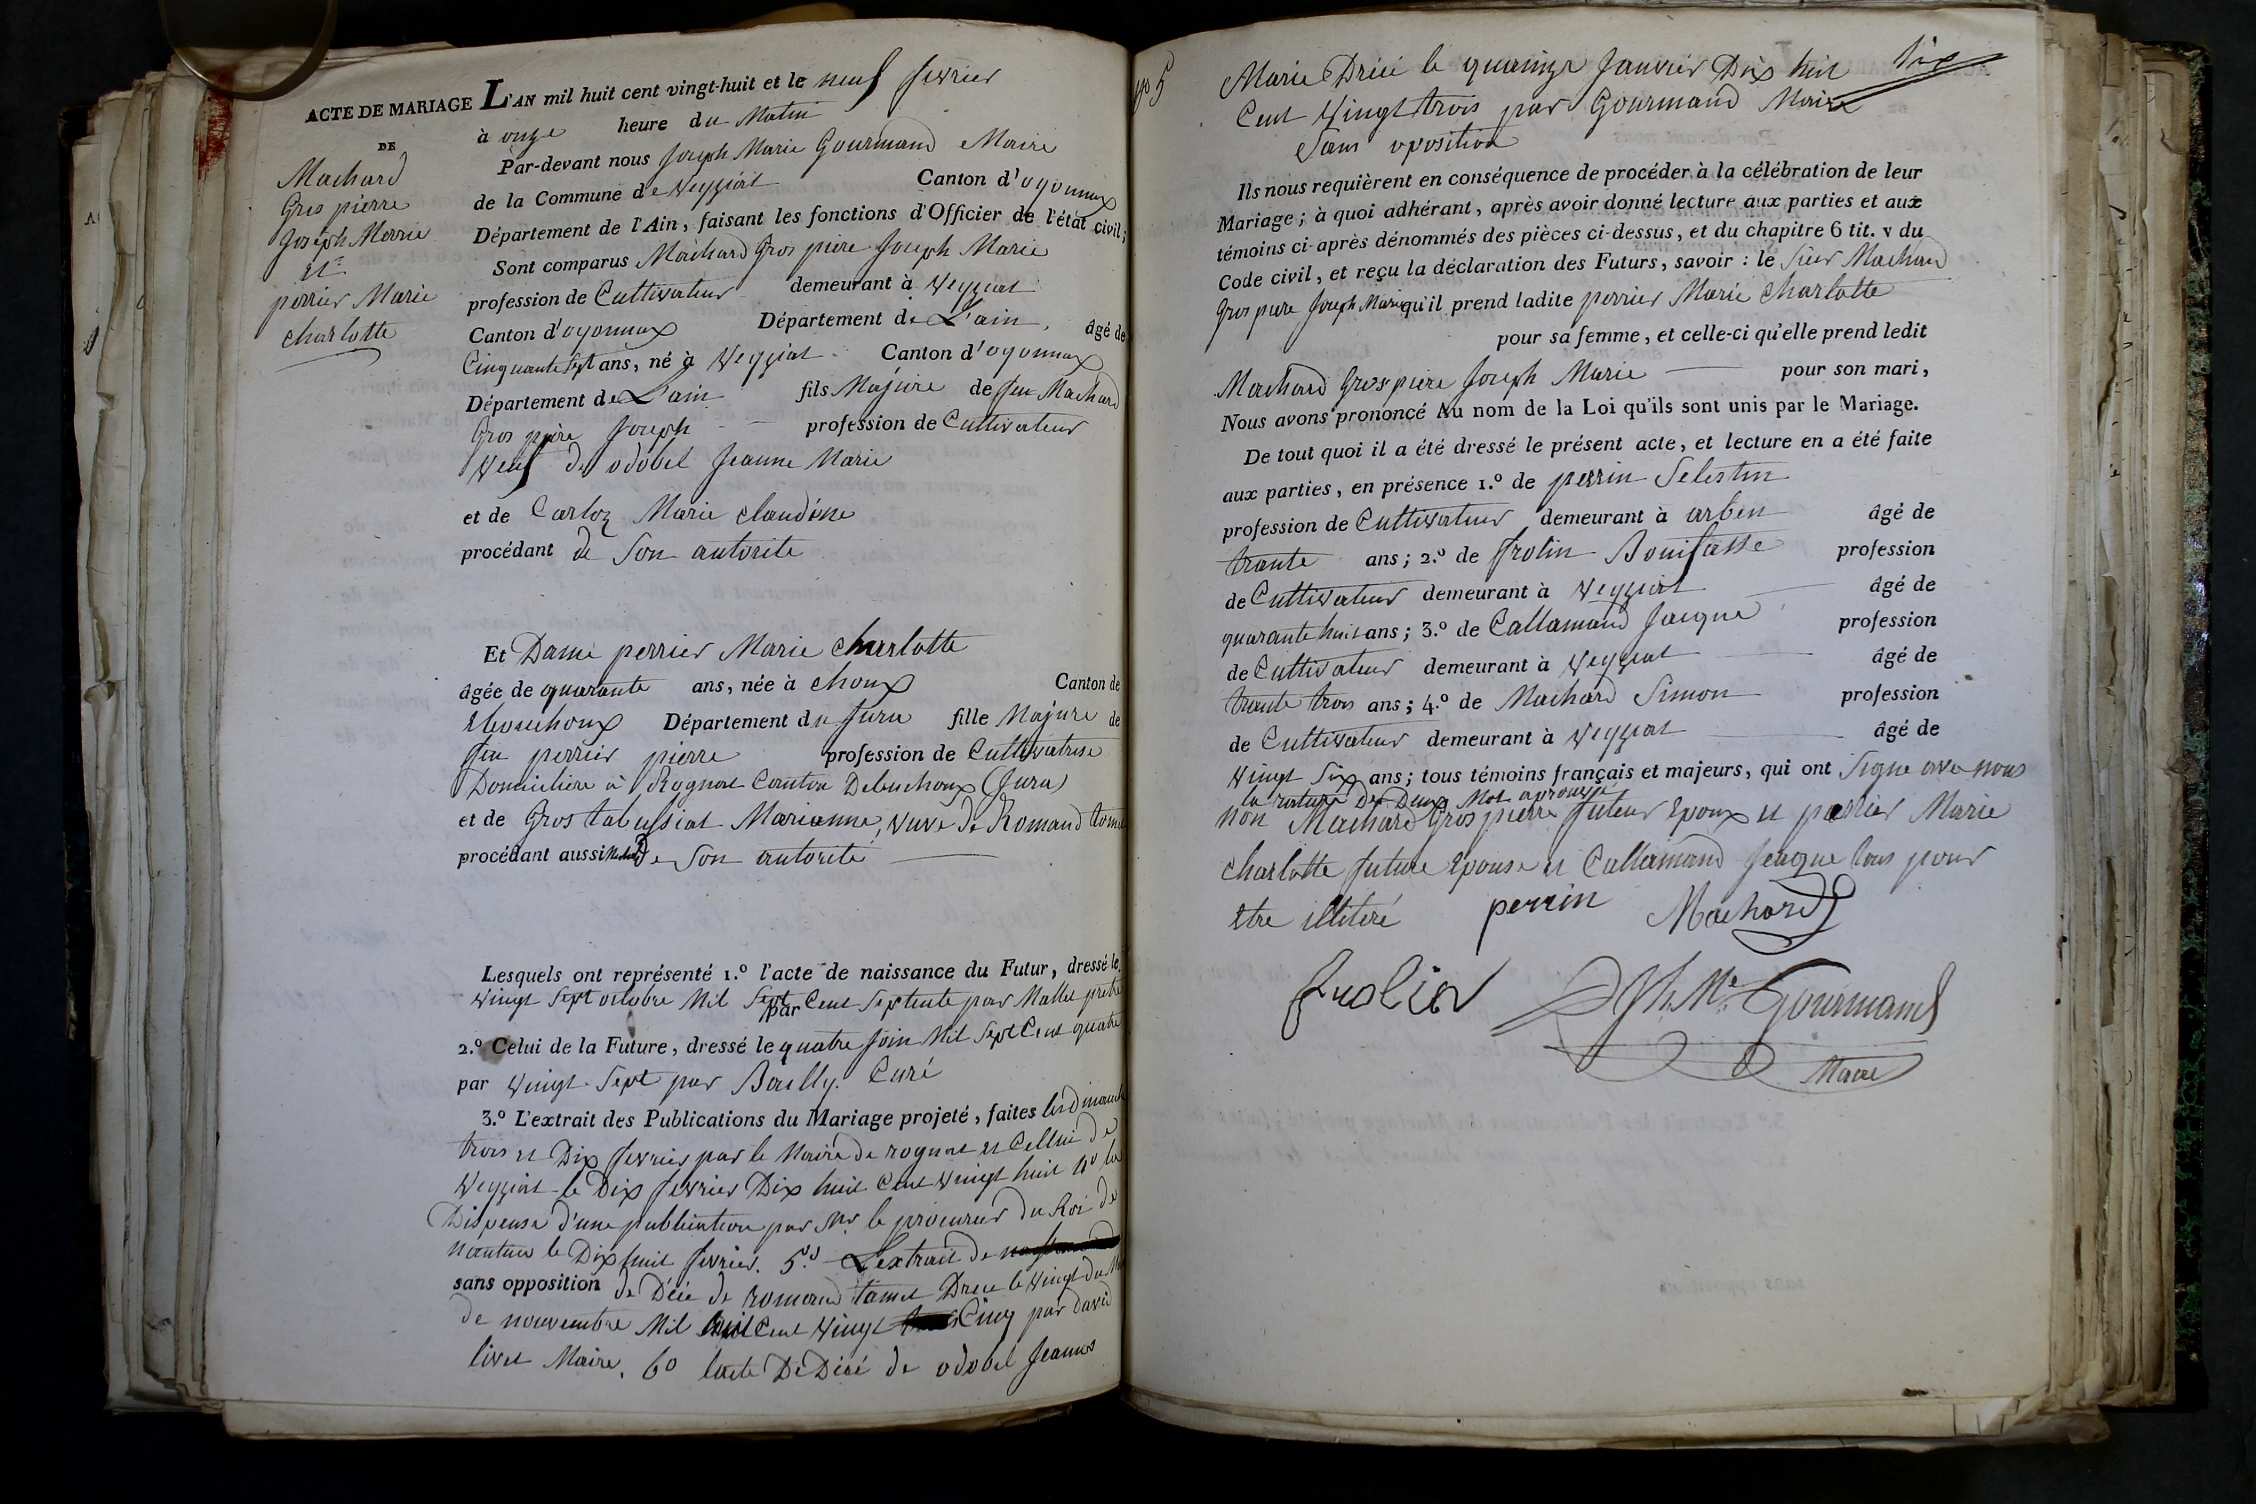 ACTE DE MARIAGE L'AN mil huit cent vingt-huit et le neuf fevrier
DE
Machard
Gros pierre
Joseph Marie
et
perrier Marie
charlotte
à onze heure du Matin
Par-devant nous Joseph Marie Gourmand Maire
de la Commune de Veyziat Canton d'oyonnax
Département de l'Ain, faisant les fonctions d'Officier de l'état civil;
Sont comparus Machard Gros piere Joseph Marie
profession de Cultivateur demeurant à Veyziat
Canton d'oyonnax Département de L'ain, âgé de
Cinquante Sept ans, né à Veyziat Canton d'oyonnax
Département de L'ain fils Majure de feu Machard
Gros pière Joseph profession de Cultivateur
Veuf de odobel Jeanne Marie
et de Carloz Marie claudine
procédant de Son autorite
Et Dame perrier Marie charlotte
âgée de quarante ans, née à choux Canton de
Lebouchoux Département du Jura fille Majure de
feu perrier pierre profession de Cultivatrise
Domiciliere à Rognat Canton Debouchoux (Jura)
et de Gros tabussiat Marianne, vuve de Romand tomet
procédant aussi de Son autorité
Lesquels ont représenté 1.º l'acte de naissance du Futur, dressé le
vingt Sept octobre Mil Sept Cent Septente par Mallet prêtre
par
2.º Celui de la Future, dressé le quatre Join Mil Sept Cent quatre
par vingt Sept par Bailly Curé
3.º L'extrait des Publications du Mariage projeté, faites les dimanche
trois et Dix fevrier par le Maire de rognat et Cellui de
Veyziat le Dix fevrier Dix huit Cent vingt huit 4º la
Dispense d'une publication par Mr le procureur du Roi de
nantua le Dix huit fevrier. 5º L'extrait de
sans opposition de Décé de romand tamet Dreée le vingt du Mois
de nouvembre Mil huit Cent vingt Cinq par david
livet Maire. 6º lacte De Décé de odobel Jeanne
nº 5
Marie Dréée le quainze Janvier Dix huit Six
Cent vingt trois par Gourmand Maire
Sans oposition
Ils nous requièrent en conséquence de procéder à la célébration de leur
Mariage; à quoi adhérant, après avoir donné lecture aux parties et aux
témoins ci-après dénommés des pièces ci-dessus, et du chapitre 6 tit. v du
Code civil, et reçu la déclaration des Futurs, savoir: le Sieur Machard
Gros piere Joseph Marie qu'il prend ladite perrier Marie charlotte
pour sa femme, et celle-ci qu'elle prend ledit
Machard Gros piere Joseph Marie pour son mari,
Nous avons prononcé Au nom de la Loi qu'ils sont unis par le Mariage.
De tout quoi il a été dressé le présent acte, et lecture en a été faite
aux parties, en présence 1.º de perrin Selestin
profession de Cultivateur demeurant à arben âgé de
trante ans; 2.º de frolin Bonifasse profession
de Cultivateur demeurant à Veyziat âgé de
quarante huit ans; 3.º de Callamand Jacque profession
de Cultivateur demeurant à Veyziat âgé de
trante trois ans; 4.º de Machard Simon profession
de Cultivateur demeurant à Veyziat âgé de
vingt Six ans; tous témoins français et majeurs, qui ont Signe avec nous
la rature des Deux Mot aprouvés
non Machard Gros pierre futeur Epoux et perrier Marie
charlotte future Epouse et Callamand Jeaque tous pour
etre illiteré perrin Machard
frolin Jh Mie Gourmand
Maire